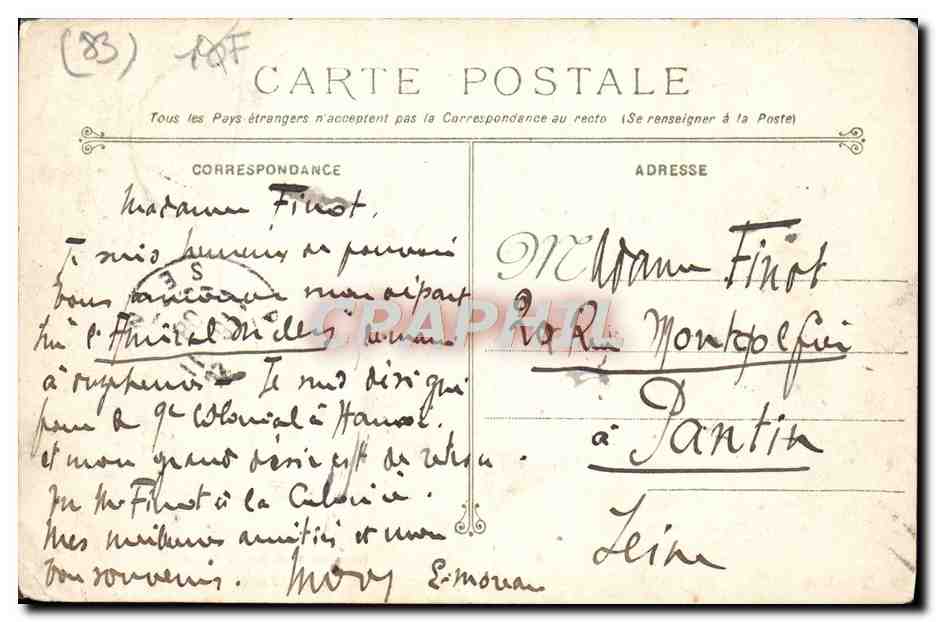 (83) 10F
CARTE POSTALE
Tous les Pays étrangers n'acceptent pas la Correspondance au recto (Se renseigner à la Poste)
CORRESPONDANCE
Madame Finot,
Je suis heureux de pouvoir
vous annoncer mon départ
sur l'Amiral demain
à onze heures - Je suis désigné
pour le 9e Colonial à Hanoï.
et mon grand désir est de retrou
Mr Finot à la Colonie.
Mes meilleures amitiés et mon
bon souvenir.
ADRESSE
Madame Finot
20 Rue Montgolfier
à Pantin
Seine
CPAPHIL